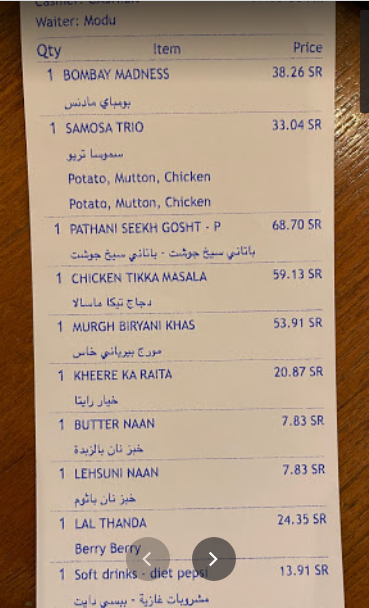 Waiter: Modu
Qty Item Price
1 BOMBAY MADNESS 38.26 SR
بومباي مادنس
1 SAMOSA TRIO 33.04 SR
سموسا تريو
Potato, Mutton, Chicken
Potato, Mutton, Chicken
1 PATHANI SEEKH GOSHT - P 68.70 SR
باتاني سيخ جوشت - باتاني سيخ جوشت
1 CHICKEN TIKKA MASALA 59.13 SR
دجاج تيكا ماسالا
1 MURGH BIRYANI KHAS 53.91 SR
مورج بيرياني خاس
1 KHEERE KA RAITA 20.87 SR
خيار رايتا
1 BUTTER NAAN 7.83 SR
خبز نان بالزبدة
1 LEHSUNI NAAN 7.83 SR
خبز نان باثوم
1 LAL THANDA 24.35 SR
Berry Berry
1 Soft drinks - diet pepsi 13.91 SR
مشروبات غازية - بيبسي دايت